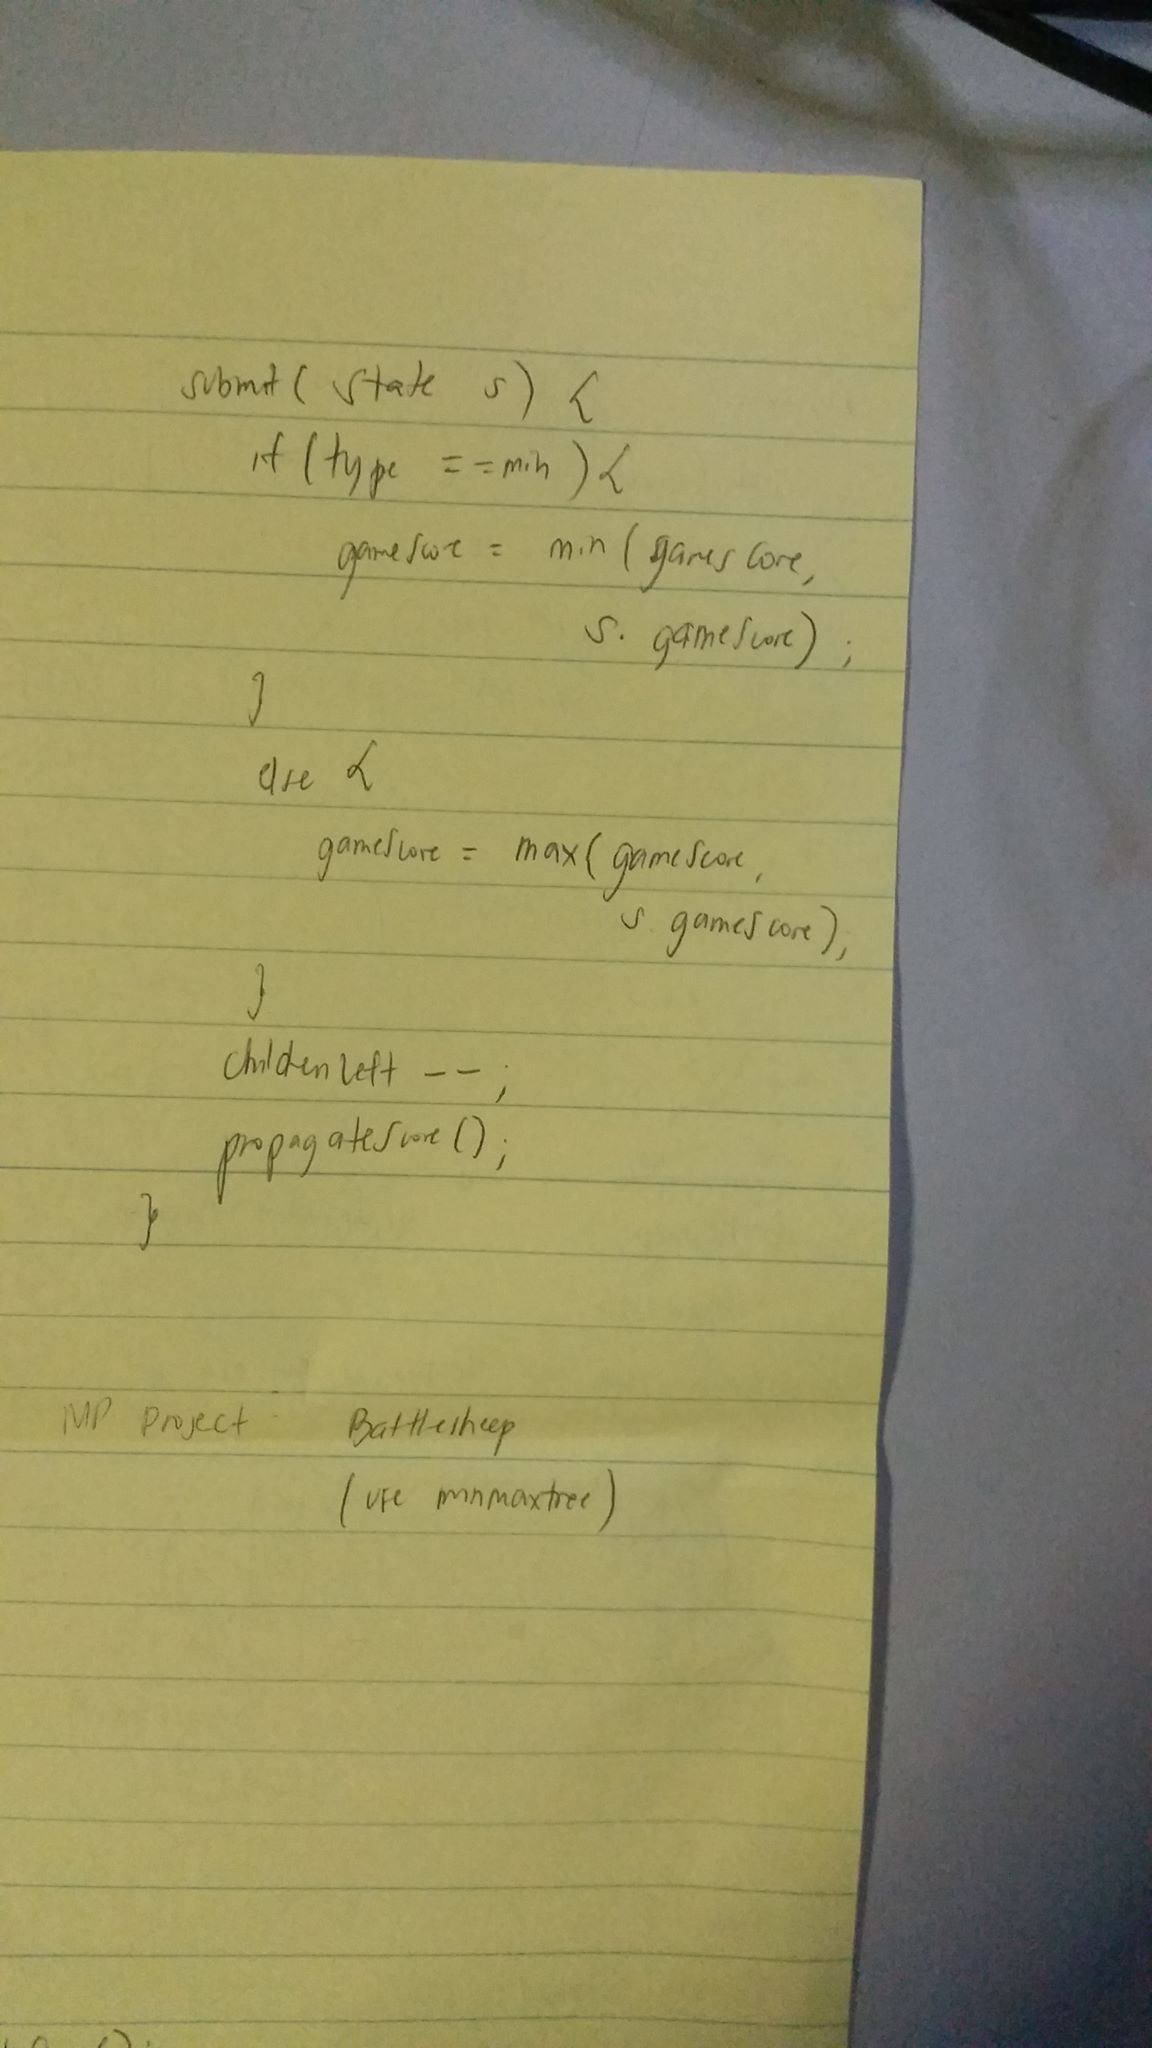 submit( state s) {
if (type == min) {
gamescore = min (gamescore,
s. gamescore) ;
}
else {
gamescore = max( gamescore,
s. gamescore);
}
childrenleft --;
propagatescore();
}
MP project Battlesheep
(use minmaxtree)